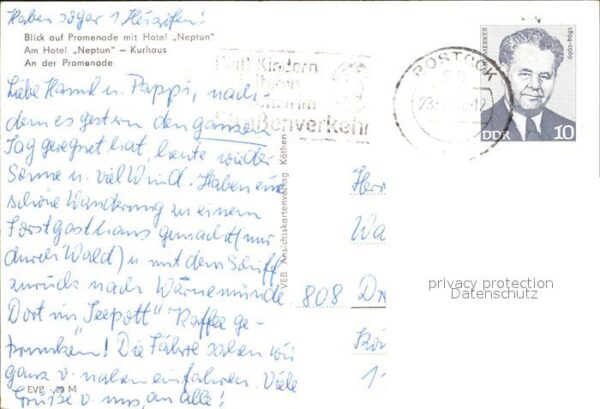 Haben sogar 1 Heizofen!
Blick auf Promenade mit Hotel „Neptun"
Am Hotel „Neptun" – Kurhaus
An der Promenade
Liebe Hanna u. Pappi, nach-
dem es gestern den ganzen
Tag geregnet hat, heute wieder
Sonne u. viel Wind. Haben eine
schöne Wanderung zu einem
Forstgasthaus gemacht (nur
durch Wald) u. mit dem Schiff
zurück nach Warnemünde.
Dort im "Teepott" Kaffee ge-
trunken! Die Fähre sahen wir
ganz v. nahen einfahren. Viele
Grüße v. uns, an alle!
EVP M
VEB Ansichtskartenverlag Köthen
Kindern
im
Straßenverkehr
ROSTOCK
1894-1960
DDR 10
Herr
Wa
808 Dre
Kön
1
privacy protection
Datenschutz